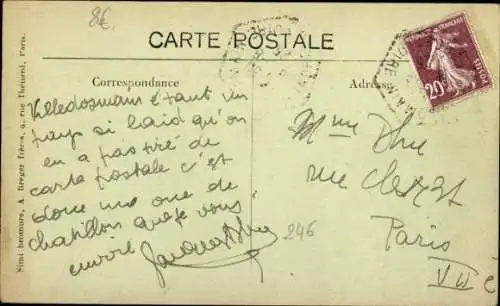 8€
CARTE POSTALE
Correspondance
Adresse
RÉPUBLIQUE FRANÇAISE
20c
POSTES
Villedomain étant un
pays si laid qu'on
en a pas tiré de
carte postale c'est
donc une vue de
chatillon que je vous
envoie
246
Mme
rue Cler
Paris
VII e
Simi bromure, A. Breger Frères, 9, rue Thénard, Paris.